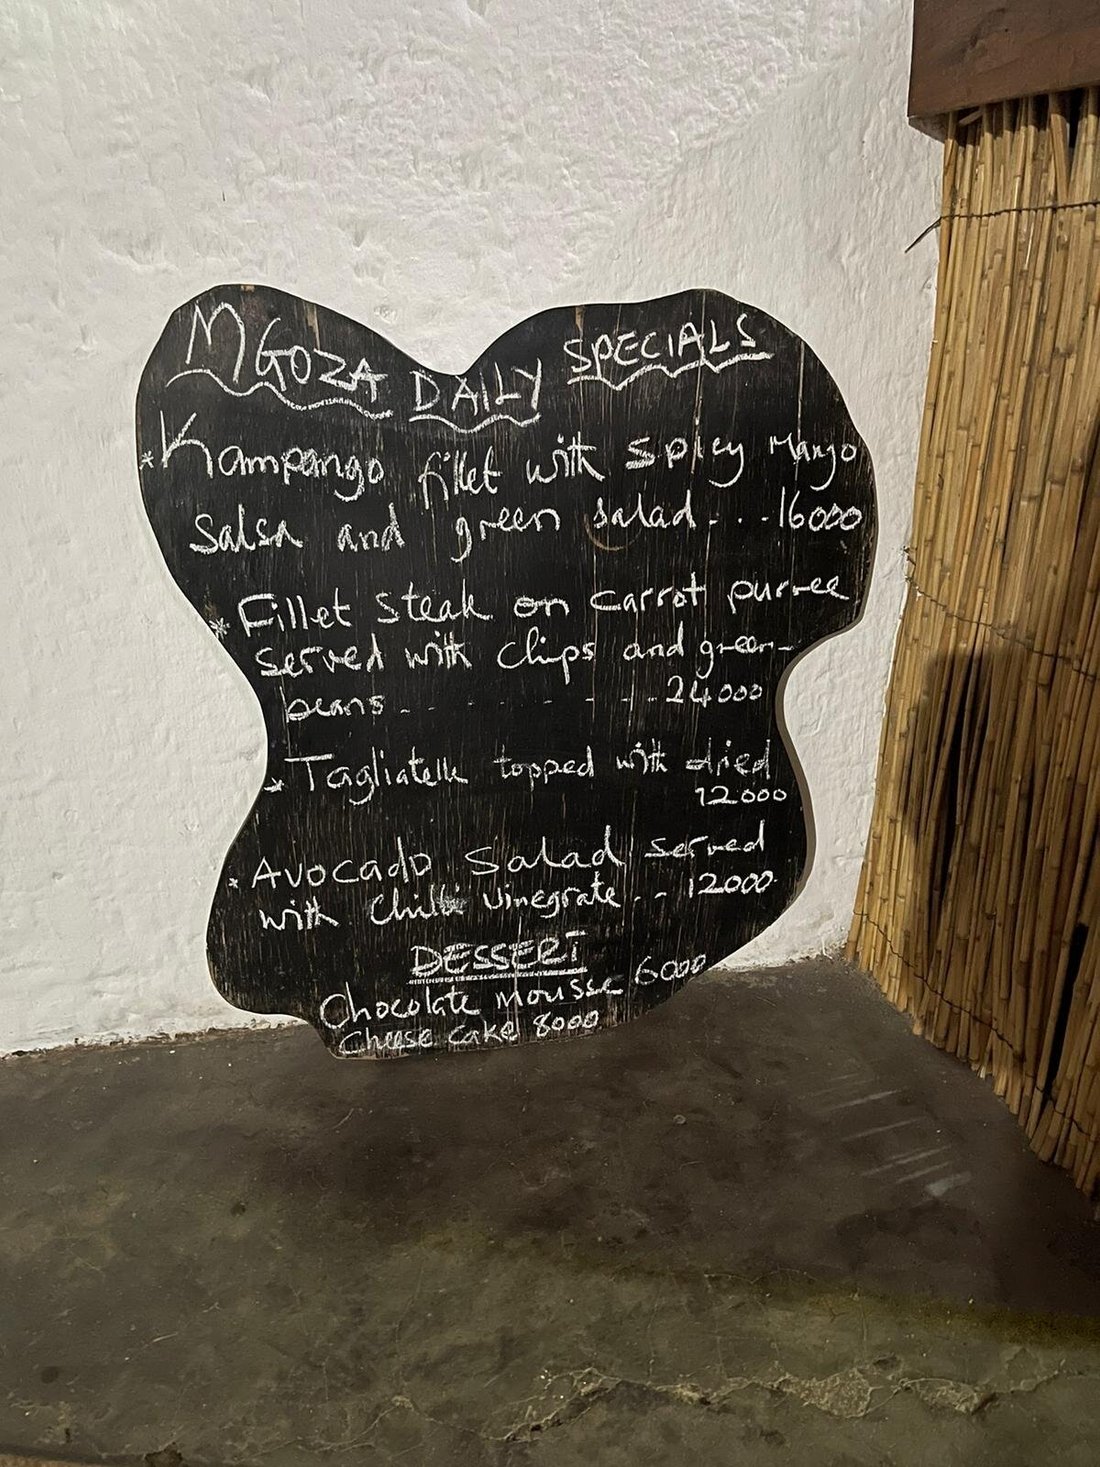 MGOZA DAILY SPECIALS
* Kampango fillet with spicy Mango
salsa and green salad. . . -16000
* Fillet steak on carrot purree
served with chips and green-
beans - - - - - - - 24000
* Tagliatelle topped with dried
12000
* Avocado salad served
with chilli vinegrate . . - 12000
DESSERT
Chocolate mousse 6000
Cheese cake 8000